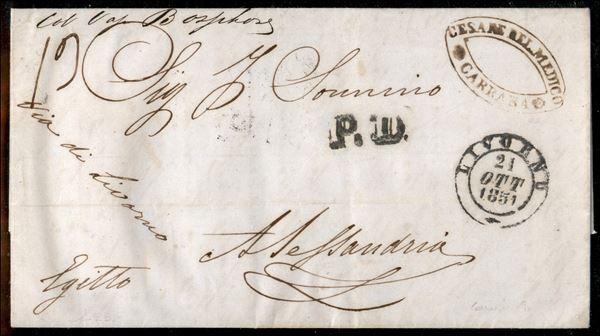 Col Vap Bosphore
CESARE DEL MEDICO
CARRARA
Sig J Sonnino
P.D.
LIVORNO
21
OTT
1851
Via di Livorno
Alessandria
Egitto